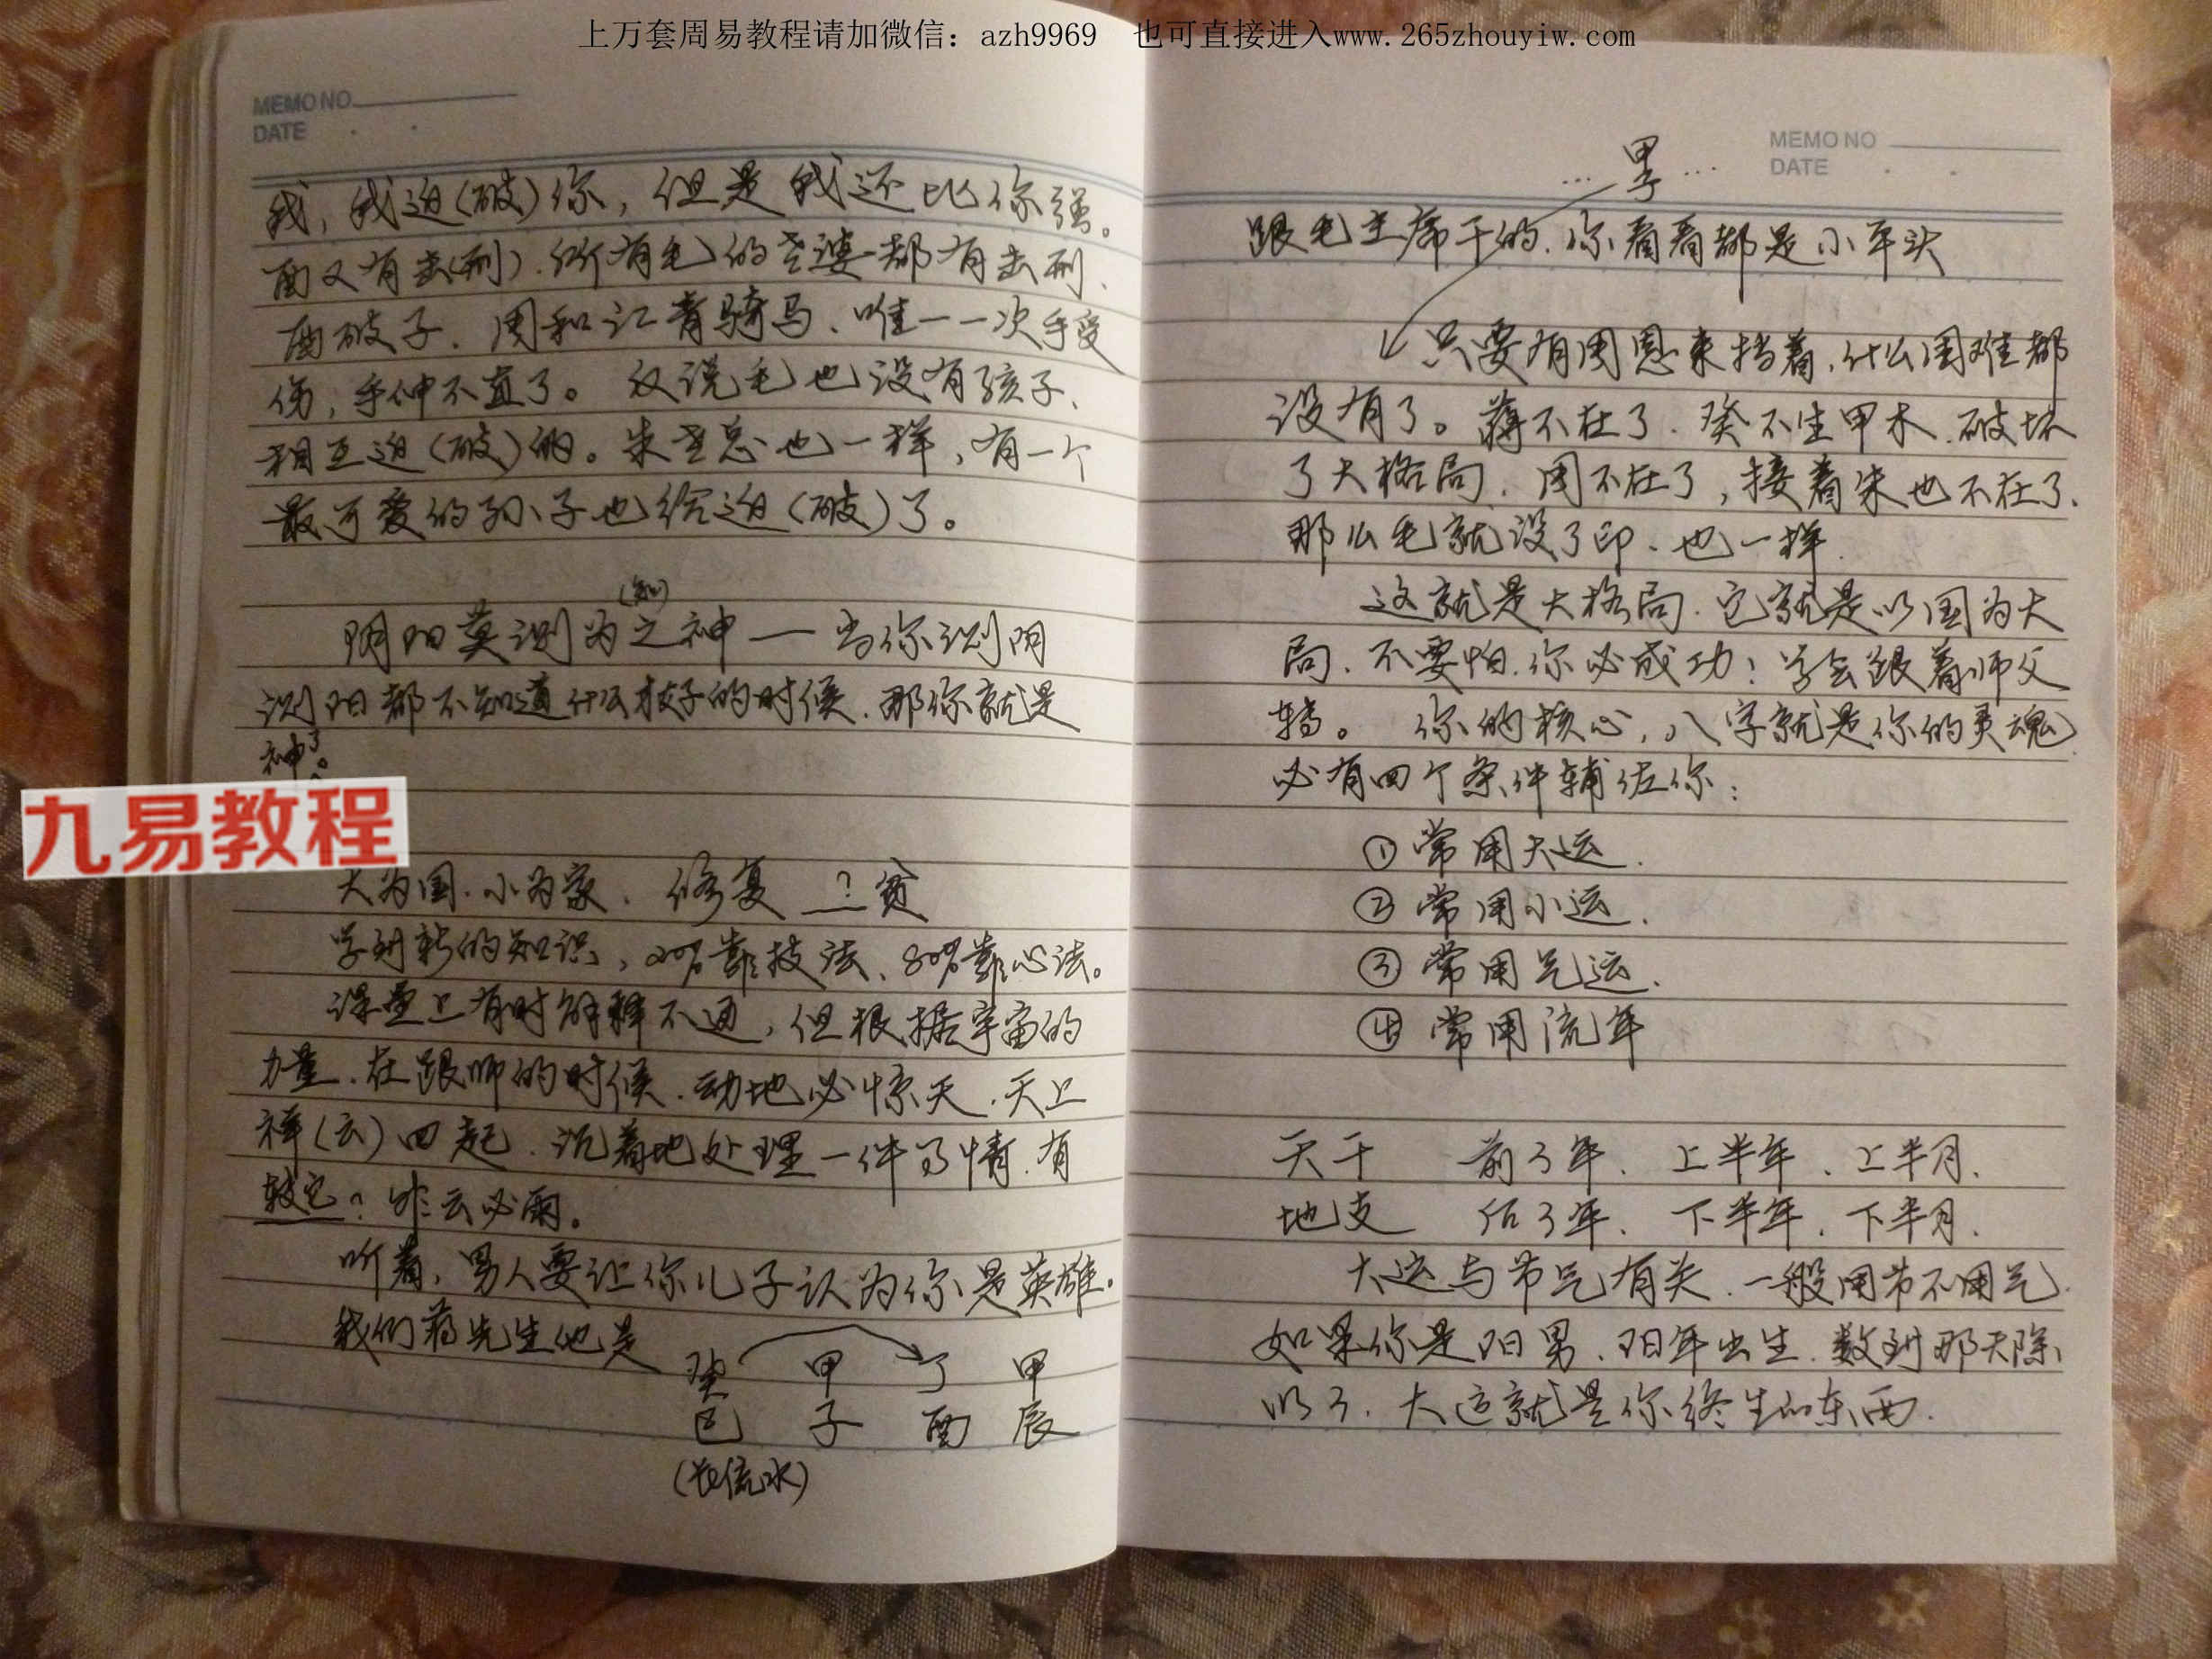 上万套周易教程请加微信：azh9969 也可直接进入www.265zhouyiw.com
MEMO NO
DATE
我，我迫(破)你，但是我还比你强。
酉又有击(刑)．所有毛的老婆都有击刑、
酉破子．周和江青骑马、唯一一次手受
伤，手伸不直了。 又说毛也没有孩子、
相互迫(破)的。朱老总也一样，有一个
最可爱的孙子也给迫(破)了。
(知)
阴阳莫测为之神 — 当你测阴
测阳都不知道什么孩子的时候．那你就是
神了。
九易教程
大为国．小为家． 修复 ？贫
学到新的知识，20%靠技法、80%靠心法。
课堂上有时解释不通，但根据宇宙的
力量．在跟师的时候．动地必惊天．天上
祥(云)四起．沉着地处理一件事情．有
较它？ 昨云必雨。
听着，男人要让你儿子认为你是英雄。
我们蒋先生他是
癸 甲 丁 甲
巳 子 酉 辰
(长流水)
MEMO NO
DATE
…甲子…
跟毛主席干的．你看看都是小平头
只要有周恩来挡着，什么困难都
没有了。 蒋不在了．癸不生甲木．破坏
了大格局．周不在了，接着朱也不在了．
那么毛就没了印、也一样．
这就是大格局．它就是以国为大
局．不要怕．你必成功！学会跟着师父
转。 你的核心，八字就是你的灵魂
必有四个条件辅佐你：
① 常用大运．
② 常用小运．
③ 常用气运．
④ 常用流年
天干 前3年． 上半年．上半月．
地支 后3年． 下半年．下半月．
大运与节气有关．一般用节不用气．
如果你是阳男．阳年出生．数到那天除
以3．大运就是你终生的东西．